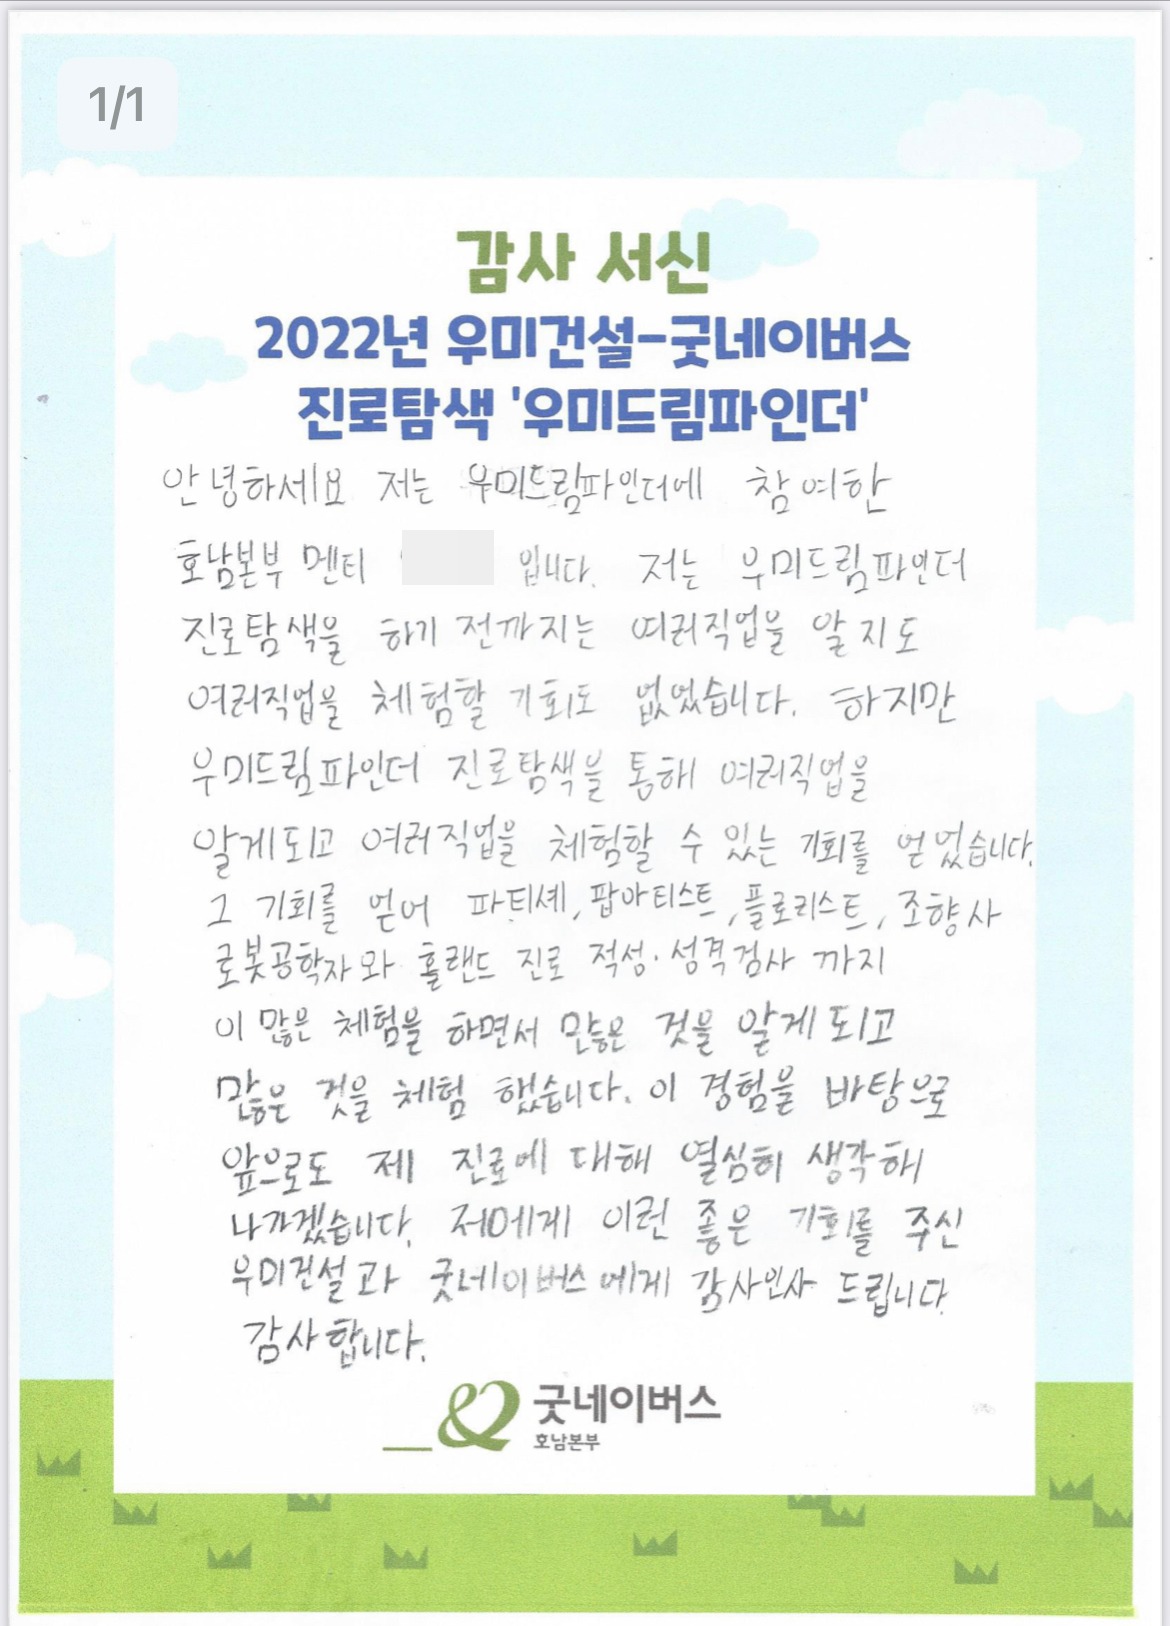 1/1
감사 서신
2022년 우미건설-굿네이버스
진로탐색 '우미드림파인더'
안녕하세요 저는 우미드림파인더에 참여한
호남본부 멘티 입니다. 저는 우미드림파인더
진로탐색을 하기 전까지는 여러직업을 알지도
여러직업을 체험할 기회도 없었습니다. 하지만
우미드림파인더 진로탐색을 통해 여러직업을
알게되고 여러직업을 체험할 수 있는 기회를 얻었습니다.
그 기회를 얻어 파티셰, 팝아티스트, 플로리스트, 조향사
로봇공학자와 홀랜드 진로 적성·성격검사 까지
이 많은 체험을 하면서 많은 것을 알게 되고
많은 것을 체험 했습니다. 이 경험을 바탕으로
앞으로도 제 진로에 대해 열심히 생각해
나가겠습니다. 저에게 이런 좋은 기회를 주신
우미건설과 굿네이버스에게 감사인사 드립니다
감사합니다.
굿네이버스
호남본부